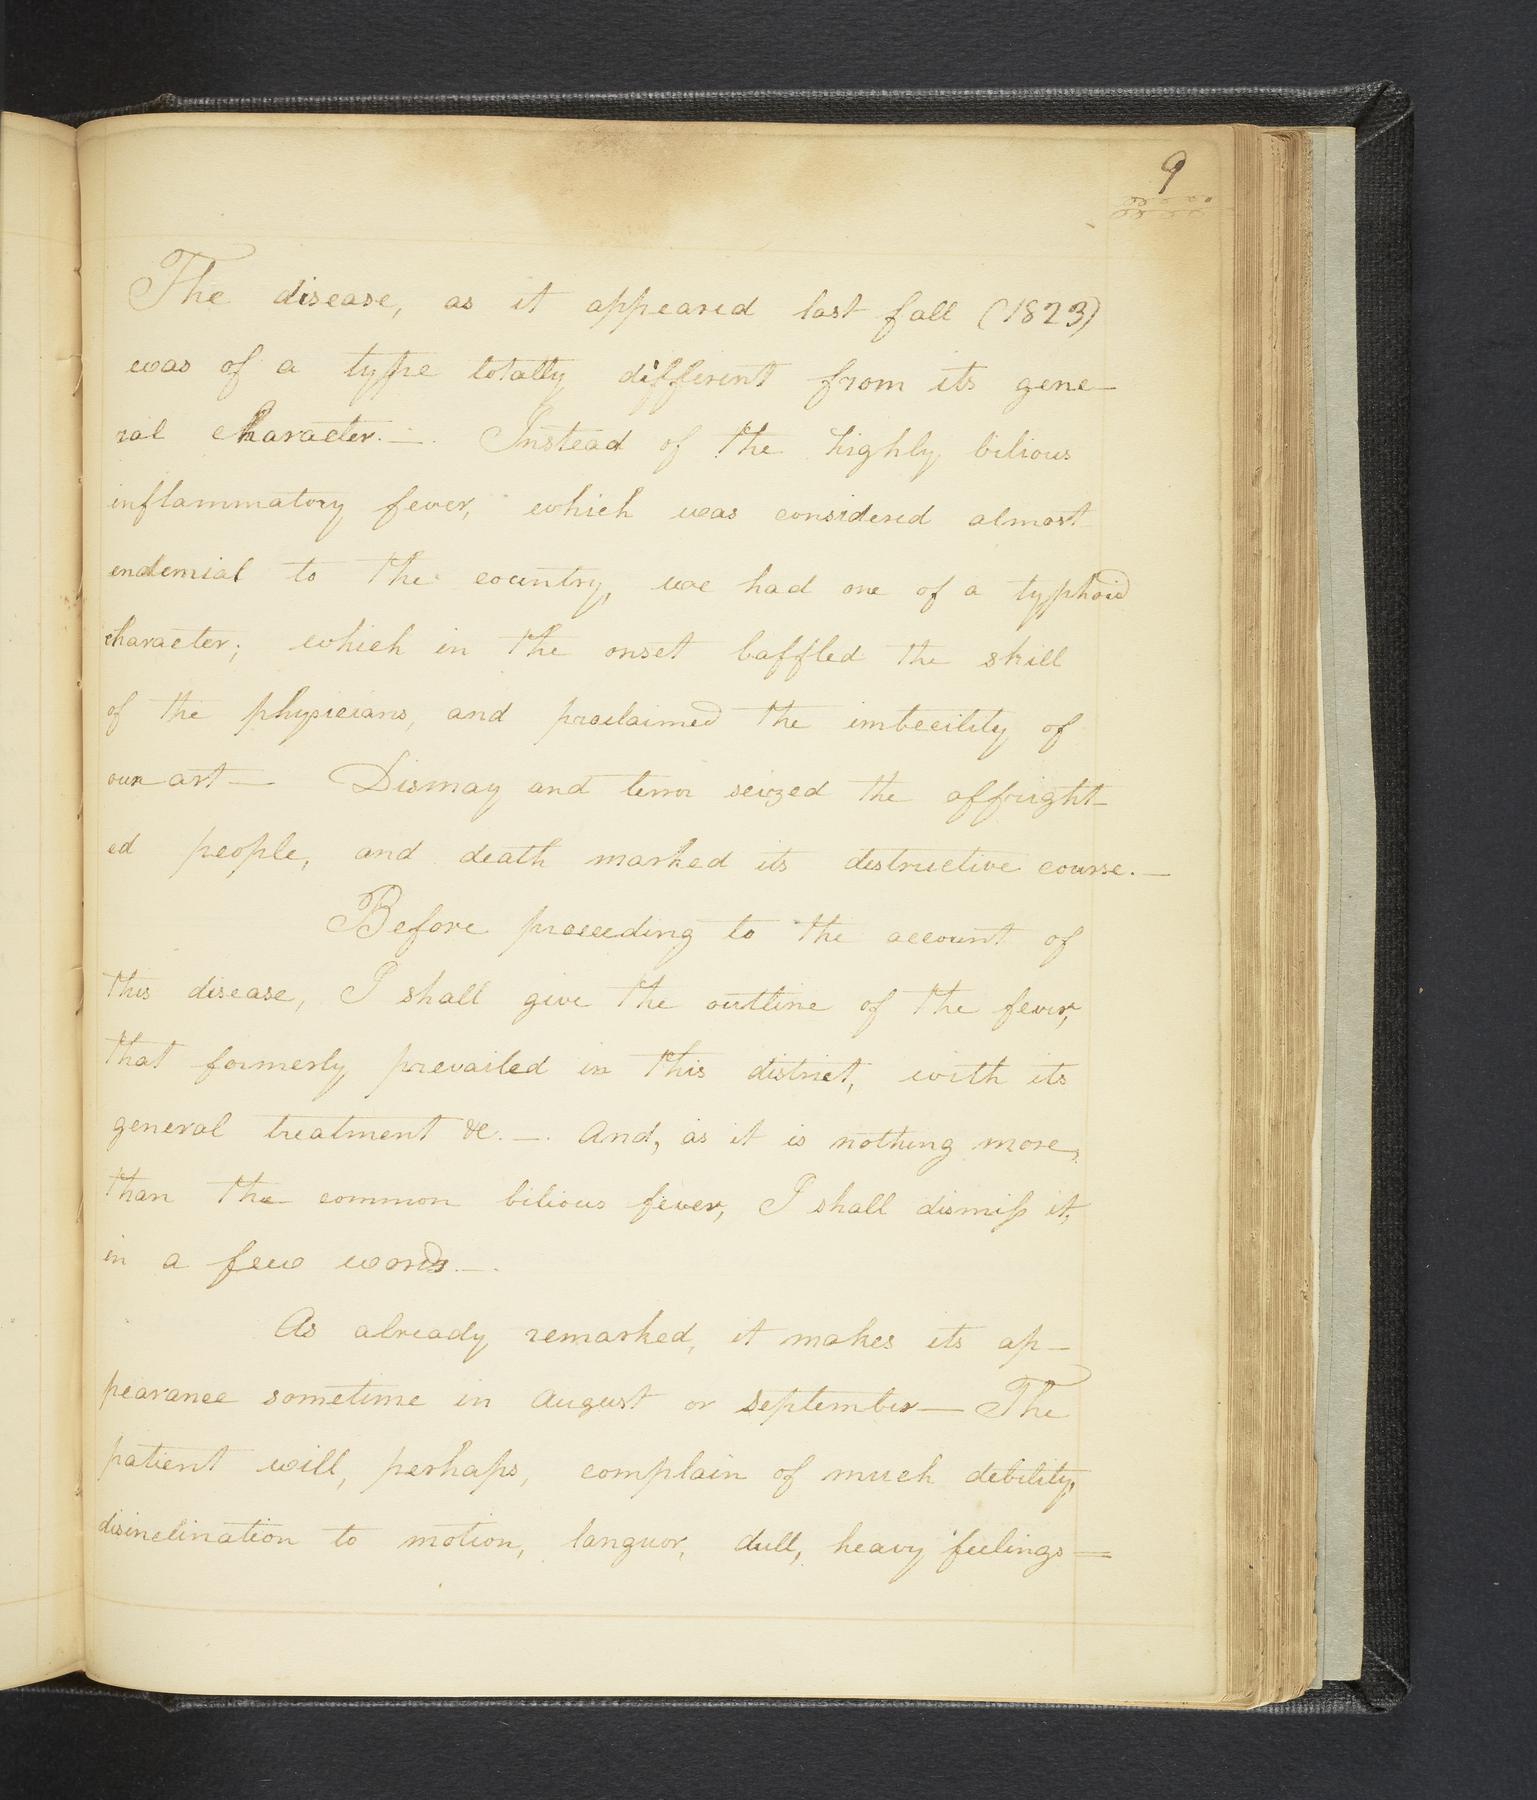 9
The disease, as it appeared last fall (1823)
was of a type totally different from its gene-
ral character.—. Instead of the highly bilious
inflammatory fever, which was considered almost
endemial to the country, we had one of a typhoid
character; which in the onset baffled the skill
of the physicians, and proclaimed the imbecility of
our art— Dismay and terror seized the affright-
ed people, and death marked its destructive course.—
Before proceeding to the account of
this disease, I shall give the outline of the fever,
that formerly prevailed in this district, with its
general treatment &c.—. And, as it is nothing more,
than the common bilious fever, I shall dismiſs it,
in a few words.—.
As already remarked, it makes its ap-
pearance sometime in August or September— The
patient will, perhaps, complain of much debility,
disinclination to motion, languor, dull, heavy feelings=